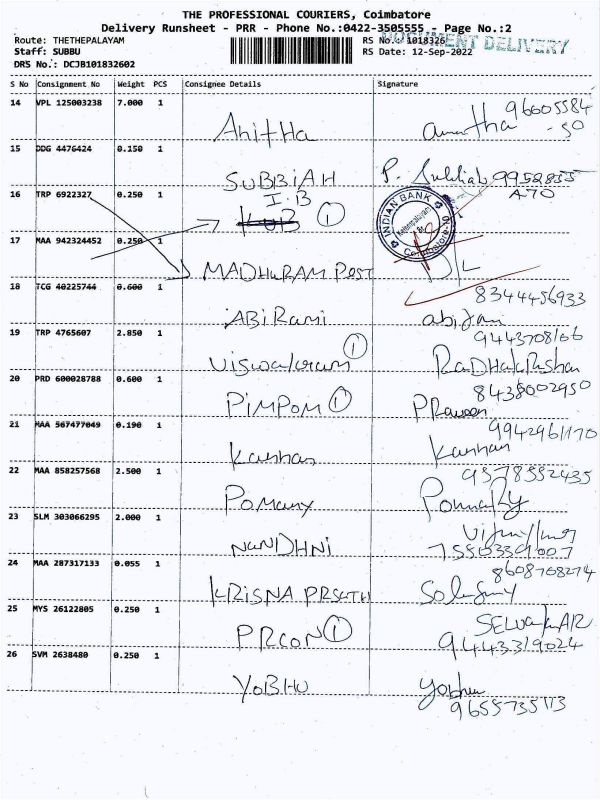 THE PROFESSIONAL COURIERS, Coimbatore
Delivery Runsheet - PRR - Phone No.:0422-3505555 - Page No.:2
Route: THETHEPALAYAM
RS No.: 1018326
DOCUMENT DELIVERY
Staff: SUBBU
RS Date: 12-Sep-2022
DRS No.: DCJB101832602
S No Consignment No Weight PCS Consignee Details Signature
14 VPL 125003238 7.000 1
96605584
Anitha
-50
15 DDG 4476424 0.150 1
SUBBiAH
9952855
A70
16 TRP 6922327 0.250 1
I.B
KUB 1
INDIAN BANK
17 MAA 942324452 0.250 1
MADHURAM POST
18 TCG 40225744 0.600 1
8344456933
ABiRami
abirami
19 TRP 4765607 2.850 1
9443708166
Viswakaram 1
RaDHaKRishan
20 PRD 600028788 0.600 1
8438002950
PiMPOM 1
PRaveen
21 MAA 567477049 0.190 1
9942961170
Kannan
Kannan
22 MAA 858257568 2.500 1
9578552435
23 SLM 303066295 2.000 1
NaNDHNi
7550339007
24 MAA 287317133 0.055 1
8608708274
KRISNA
25 MYS 26122805 0.250 1
PRCON 1
9444319024
26 SVM 2638480 0.250 1
YOBHU
9655735113